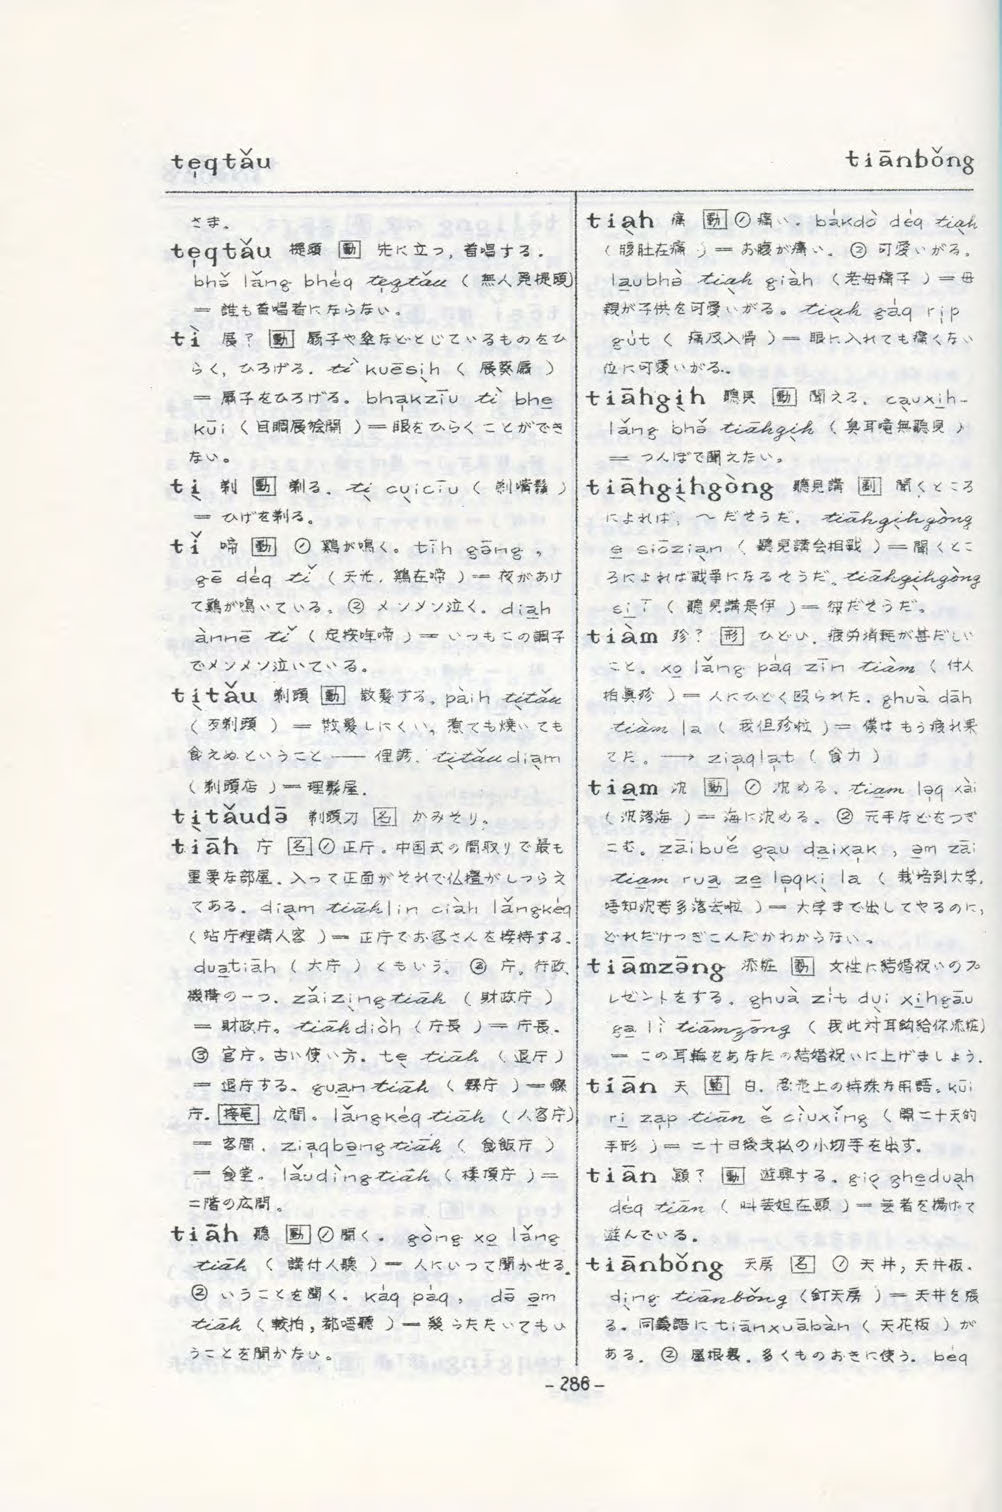 tẹqtǎu
tiānbǒng
さま。
tẹqtǎu 提頭 [動] 先に立つ, 首唱する.
bhǒ lǎng bhéq tẹqtǎu ( 無人覓提頭)
= 誰も首唱者にならない。
tì 展? [動] 扇子や傘などとじているものをひ
らく, ひろげる. tì kuēsịh ( 展葵扇 )
= 扇子をひろげる。 bhạkzīu tì bhe̲
kūi ( 目睭展袂開 ) = 眼をひらくことができ
ない。
tị 剃 [動] 剃る. tị cụicīu ( 剃嘴鬚 )
= ひげを剃る。
tǐ 啼 [動] ① 鶏が鳴く。 tīh gāng ,
gē déq tǐ ( 天光, 鶏在啼 ) = 夜があけ
て鶏が鳴いている。 ② メンメン泣く. dia̲h
ànnē tǐ ( 定按哖啼 ) = いつもこの調子
でメンメン泣いている。
tịtǎu 剃頭 [動] 散髪する. pàih tịtǎu
( 歹剃頭 ) = 散髪しにくい, 煮ても焼いても
食えぬということ —— 俚諺. tịtǎudiạm
( 剃頭店 ) = 理髪屋.
tịtǎudē 剃頭刀 [名] かみそり.
tiāh 庁 [名] ① 正庁. 中国式の間取りで最も
重要な部屋. 入って正面がそれで仏壇がしつらえ
てある. dia̲m tiāhlin ciàh lǎngkéq
( 站庁裡請人客 ) = 正庁でお客さんを接待する.
dua̲tiāh ( 大庁 ) ともいう. ② 庁. 行政
機構の一つ. zǎizịngtiāh ( 財政庁 )
= 財政庁. tiāhdiòh ( 庁長 ) = 庁長.
③ 官庁. 古い使い方. tẹ tiāh ( 退庁 )
= 退庁する. gua̲ntiāh ( 縣庁 ) = 縣
庁. [接尾] 広間. lǎngkéqtiāh ( 人客庁)
= 客間. ziạqbe̲ngtiāh ( 食飯庁 )
= 食堂. lǎudìngtiāh ( 樓頂庁 ) =
二階の広間.
tiāh 聽 [動] ① 聞く. gòng xọ lǎng
tiāh ( 講付人聽 ) = 人にいって聞かせる.
② いうことを聞く. káq páq , dē e̲m
tiāh ( 較拍, 都唔聽 ) = 幾らたたいてもい
うことを聞かない.
tiạh 痛 [動] ① 痛い. bákdò déq tiạh
( 腹肚在痛 ) = お腹が痛い. ② 可愛いがる.
la̲ubhè tiạh giàh ( 老母痛子 ) = 母
親が子供を可愛いがる. tiạh gáq rịp
gút ( 痛及入骨 ) = 眼に入れても痛くない
位に可愛いがる.
tiāhgịh 聽見 [動] 聞える. cạuxịh-
lǎng bhǒ tiāhgịh ( 臭耳聾無聽見 )
= つんぼで聞えない.
tiāhgịhgòng 聽見講 [副] 聞くところ
によれば, 〜だそうだ. tiāhgịhgòng
e̲ siōziạn ( 聽見講会相戦 ) = 聞くとこ
ろによれば戦争になるそうだ. tiāhgịhgòng
si̲ ī ( 聽見講是伊 ) = 彼だそうだ.
tiàm 殄? [形] ひどい, 疲労消耗が甚だしい
こと. xọ lǎng páq zīn tiàm ( 付人
拍真殄 ) = 人にひどく殴られた. ghuà dāh
tiàm la ( 我但殄啦 ) = 僕はもう疲れ果
てた. → ziạqlạt ( 食力 )
tia̲m 沈 [動] ① 沈める. tia̲m lạq xài
( 沈落海 ) = 海に沈める. ② 元手などをつぎ
こむ. zāibuě gạu da̲ixạk , e̲m zāi
tia̲m rua̲ ze̲ lạqkị la ( 栽培到大学,
唔知沈若多落去啦 ) = 大学まで出してやるのに,
どれだけつぎこんだかわからない.
tiāmzāng 添粧 [動] 女性に結婚祝いのプ
レゼントをする. ghuà zít dụi xi̲hgāu
ga̲ lì tiāmzōng ( 我此対耳鈎給你添粧)
= この耳輪をあなたの結婚祝いに上げましょう.
tiān 天 [範] 日. 商売上の特殊な用語. kūi
ri̲ zạp tiān ě cìuxíng ( 開二十天的
手形 ) = 二十日後支払の小切手を出す.
tiān 顚? [動] 遊興する. giọ ghe̲duạh
déq tiān ( 叫芸妲在顚 ) = 芸者を揚げて
遊んでいる.
tiānbǒng 天房 [名] ① 天井, 天井板.
dịng tiānbǒng ( 釘天房 ) = 天井を張
る. 同義語に tiānxuābàn ( 天花板 ) が
ある. ② 屋根裏. 多くものおきに使う. béq
- 286 -